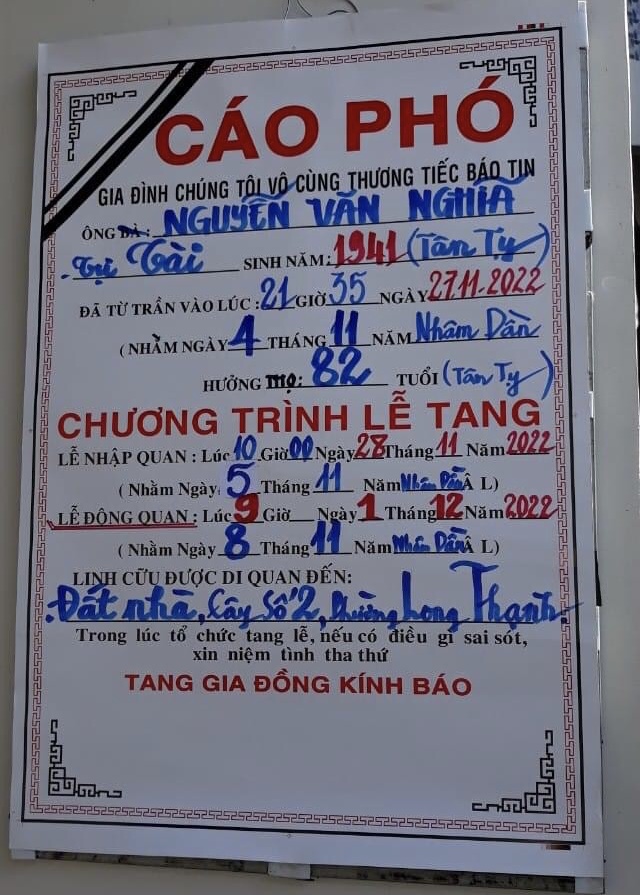 CÁO PHÓ
GIA ĐÌNH CHÚNG TÔI VÔ CÙNG THƯƠNG TIẾC BÁO TIN
ÔNG BÀ: NGUYỄN VĂN NGHĨA
Tự Tài SINH NĂM: 1941 (Tân Tỵ)
ĐÃ TỪ TRẦN VÀO LÚC: 21 GIỜ 35 NGÀY 27.11.2022
( NHẰM NGÀY 4 THÁNG 11 NĂM Nhâm Dần
HƯỞNG THỌ: 82 TUỔI (Tân Tỵ)
CHƯƠNG TRÌNH LỄ TANG
LỄ NHẬP QUAN : Lúc 10 Giờ 00 Ngày 28 Tháng 11 Năm 2022
( Nhằm Ngày 5 Tháng 11 Năm Nhâm Dần Â L)
LỄ ĐỘNG QUAN : Lúc 9 Giờ Ngày 1 Tháng 12 Năm 2022
( Nhằm Ngày 8 Tháng 11 Năm Nhâm Dần Â L)
LINH CỮU ĐƯỢC DI QUAN ĐẾN:
Đất nhà, Cây Số 2, Phường Long Thạnh.
Trong lúc tổ chức tang lễ, nếu có điều gì sai sót,
xin niệm tình tha thứ
TANG GIA ĐỒNG KÍNH BÁO